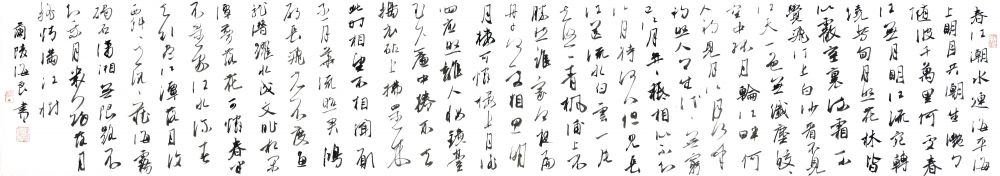 春江潮水連海平海
上明月共潮生灔々
隨波千萬里何處春
江無月明江流宛轉
繞芳甸月照花林皆
似霰空裏流霜不
覺飛汀上白沙看不見
江天一色無纖塵皎々
空中孤月輪江畔何
人初見月江月何年
初照人人生代々無窮
已江月年年祗相似不知
江月待何人但見長
江送流水白雲一片
去悠々青楓浦上不
勝愁誰家今夜扁
舟子何處相思明
月樓可憐樓上月徘
徊應照離人妝鏡臺
玉戶簾中捲不去
搗衣砧上拂還來
此時相望不相聞願
逐月華流照君鴻
雁長飛光不度魚
龍潛躍水成文昨夜閑
潭夢落花可憐春半
不還家江水流春
去欲盡江潭落月復
西斜々月沉々藏海霧
碣石瀟湘無限路不
知乘月幾人歸落月
搖情滿江樹
蘭陵海良書